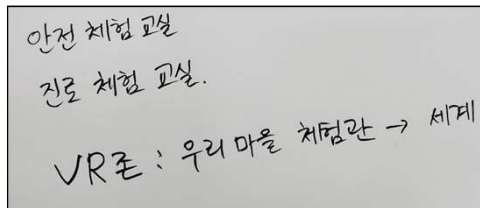 안전 체험 교실
진로 체험 교실.
VR존 : 우리 마을 체험관 → 세계